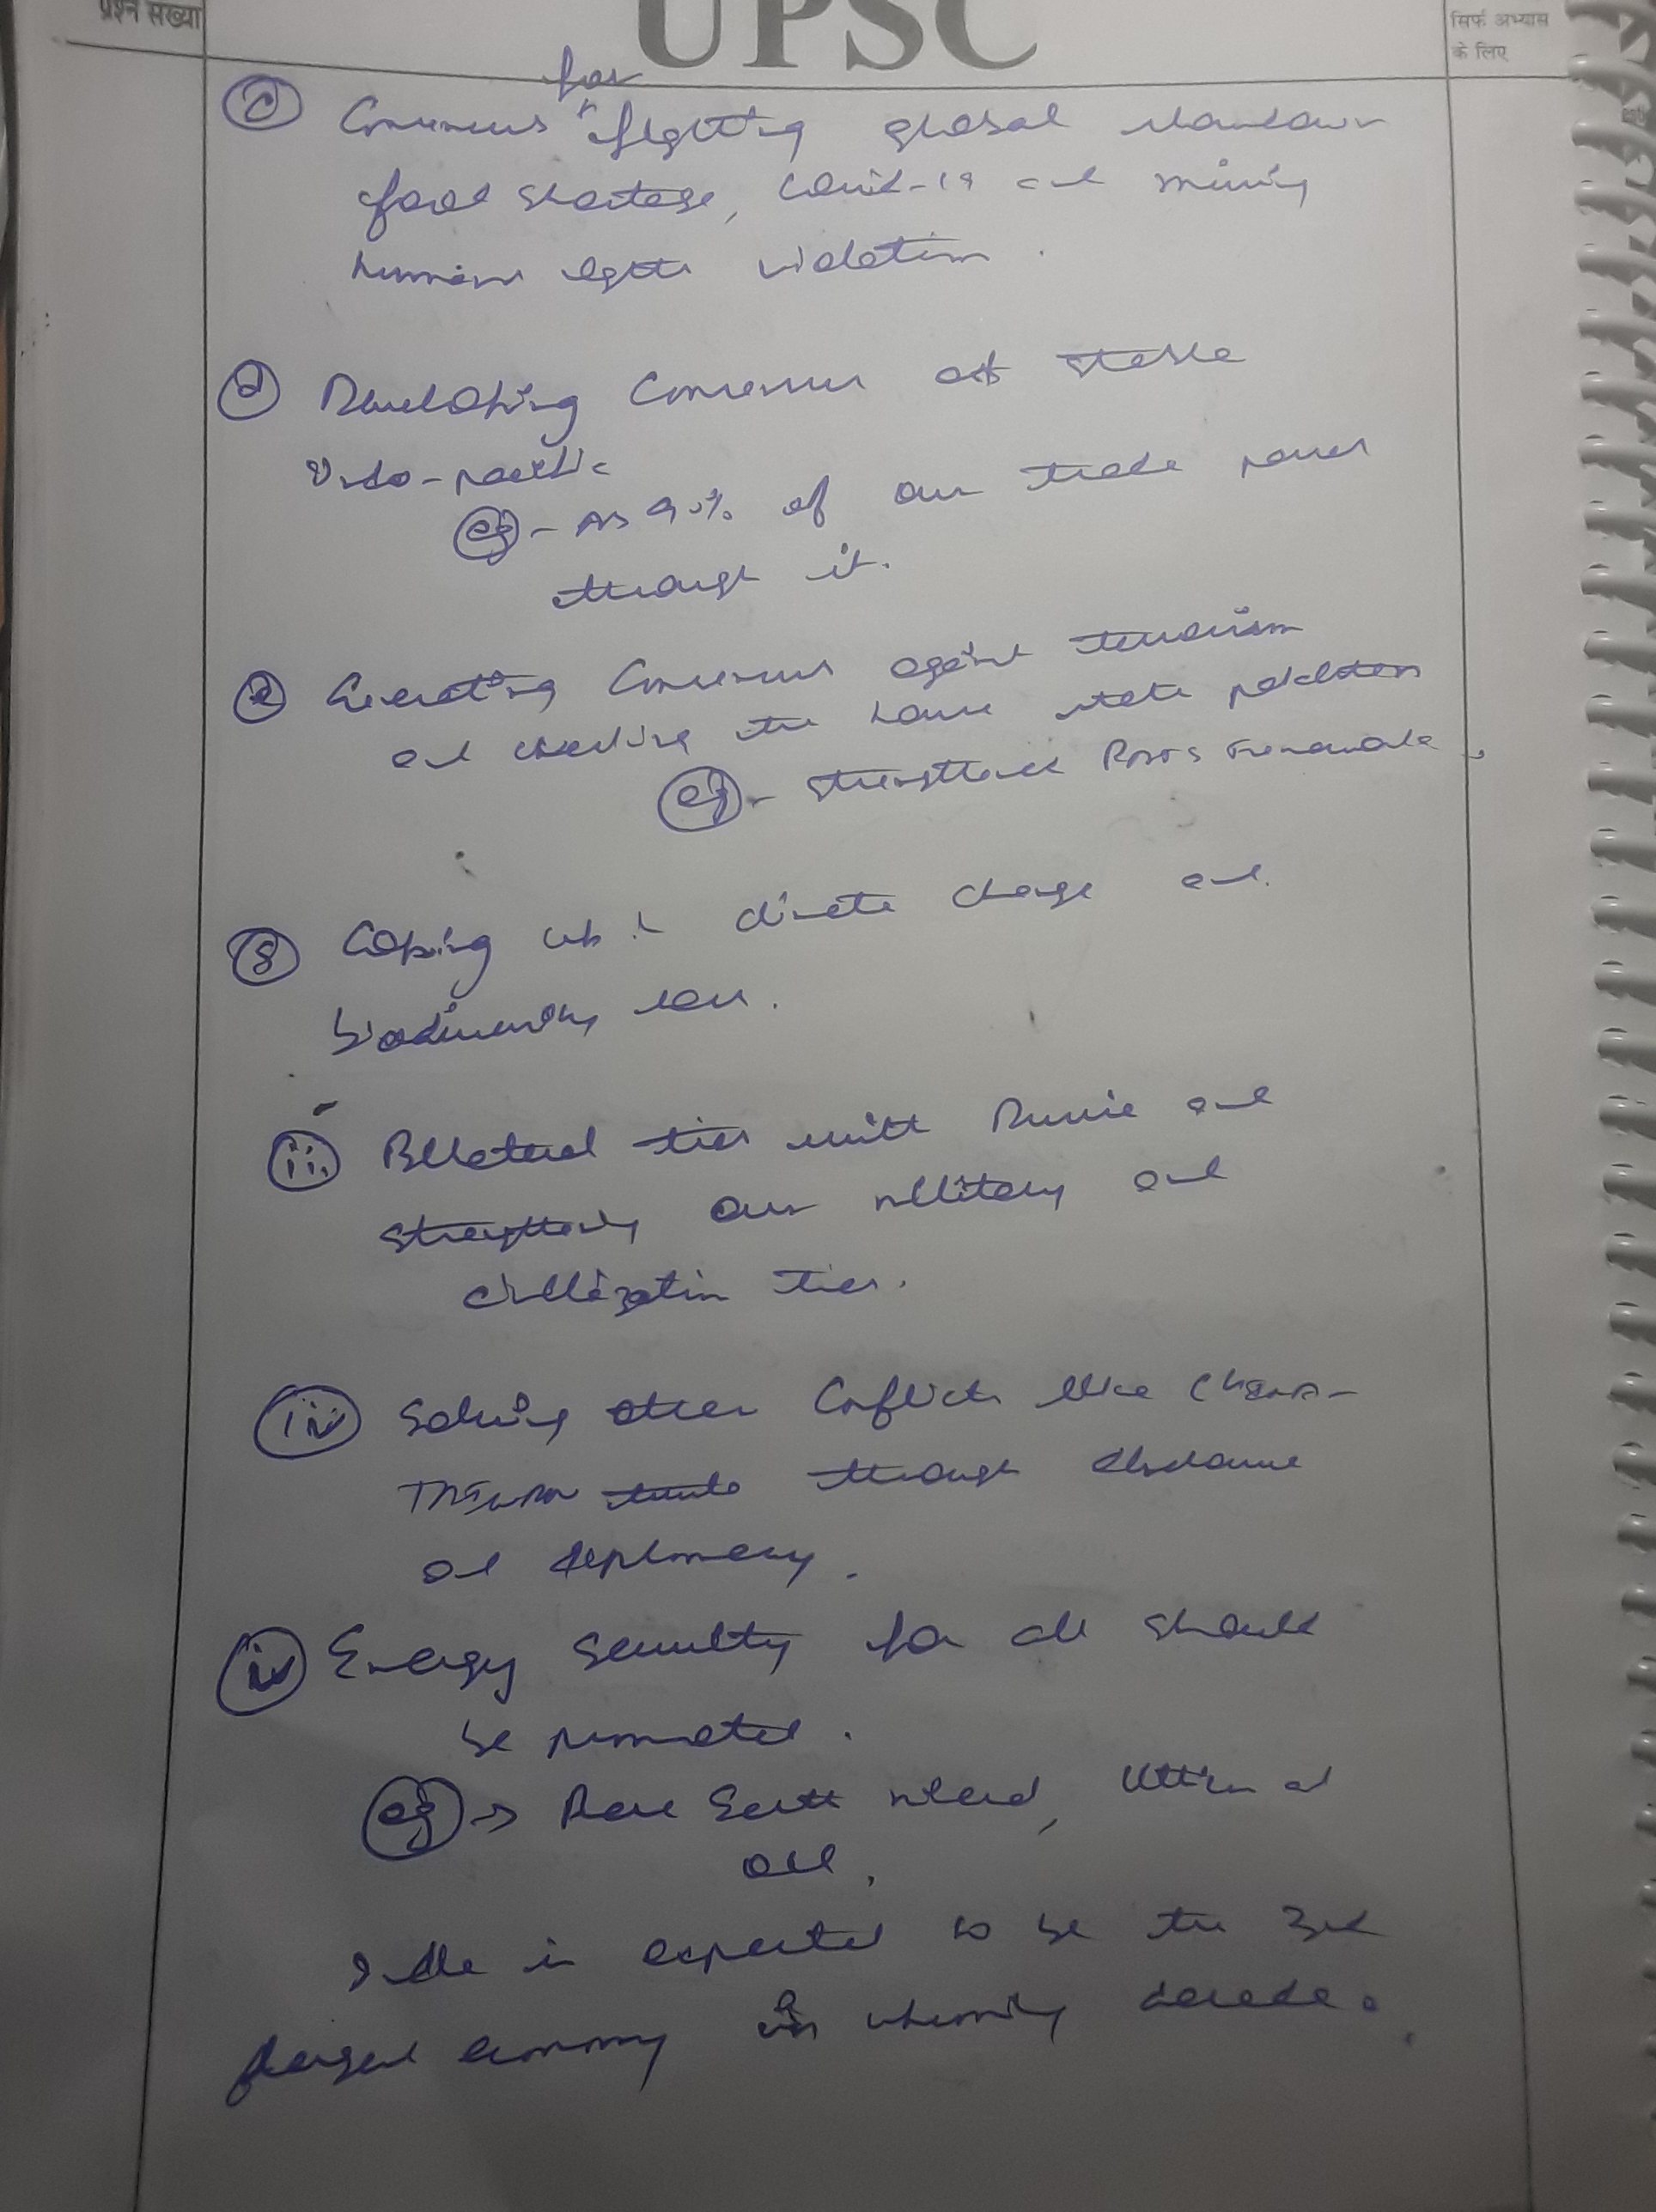 प्रश्न संख्या
UPSC
सिर्फ अभ्यास
के लिए
for
c Consensus fighting global slowdown
food shortage, Covid-19 and
human rights violation.
d Developing Consensus of stable
Indo-pacific
eg - As 90% of our trade passes
through it.
e Generating Consensus against terrorism
and checking the state
eg - strengthened
Coping up in climate change and
biodiversity loss.
iii. Bilateral ties with Russia and
strengthening our military and
civilization ties.
iv Solving other Conflicts like China-
TAIWAN through
and diplomacy.
iv Energy Security for all should
be promoted.
eg → Rare Earth Lithium and
oil,
India is expected to be the 3rd
largest economy in decade.